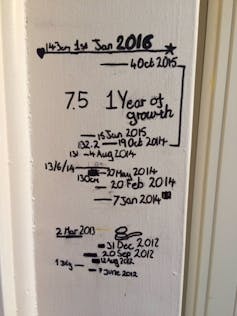 14Jan 1st Jan 2016
4 Oct 2015
7.5 1 Year of
growth
15 Jan 2015
132.2 19 Oct 2014
131 4 Aug 2014
13/6/14 20 May 2014
130cm
20 Feb 2014
7 Jan 2014
2 Mar 2013
31 Dec 2012
20 Sep 2012
12 Aug 2012
1 July
7 June 2012